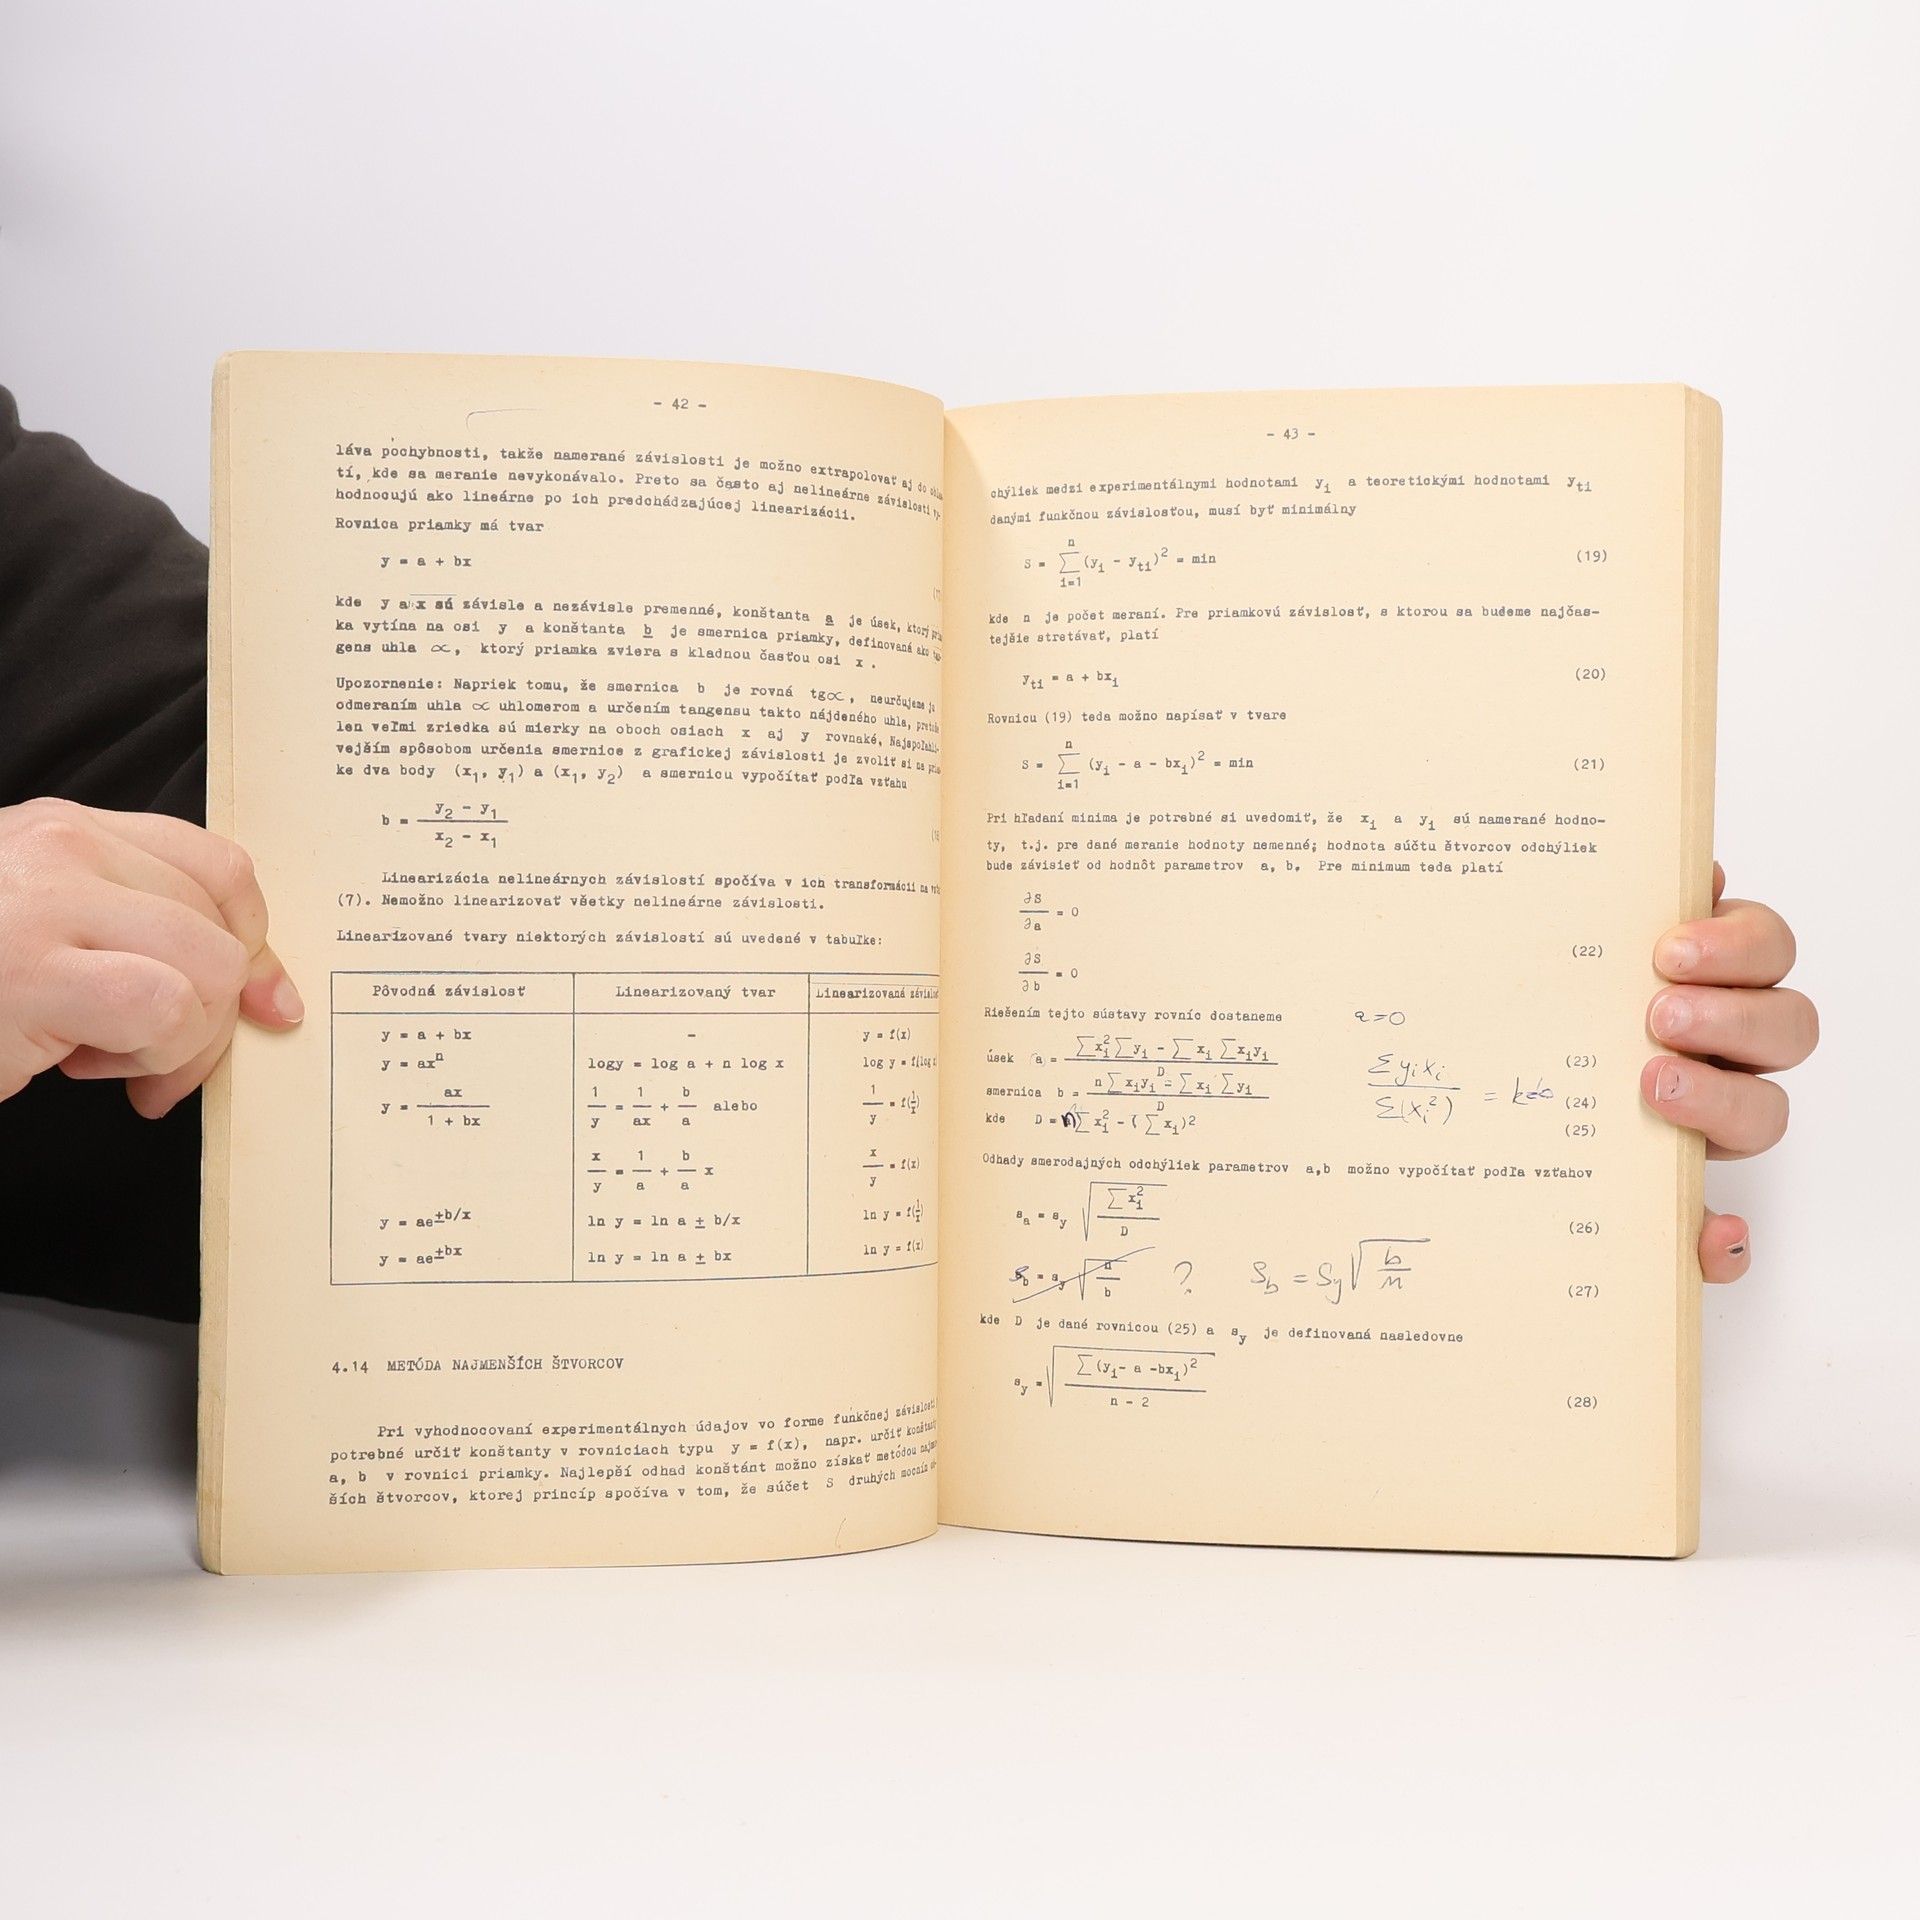 - 42 -
láva pochybnosti, takže namerané závislosti je možno extrapolovať aj do
tí, kde sa meranie nevykonávalo. Preto sa často aj nelineárne závislosti vy-
hodnocujú ako lineárne po ich predchádzajúcej linearizácii.
Rovnica priamky má tvar
y = a + bx
kde y a x sú závisle a nezávisle premenné, konštanta a je úsek, ktorý
ka vytína na osi y a konštanta b je smernica priamky, definovaná ako
gens uhla ∝, ktorý priamka zviera s kladnou časťou osi x .
Upozornenie: Napriek tomu, že smernica b je rovná tg∝, neurčujeme ju
odmeraním uhla ∝ uhlomerom a určením tangensu takto nájdeného uhla, pretože
len veľmi zriedka sú mierky na oboch osiach x aj y rovnaké. Najspoľahli-
vejším spôsobom určenia smernice z grafickej závislosti je zvoliť si na
ke dva body (x₁, y₁) a (x₁, y₂) a smernicu vypočítať podľa vzťahu
b = (y₂ - y₁) / (x₂ - x₁)
Linearizácia nelineárnych závislostí spočíva v ich transformácii na
(7). Nemožno linearizovať všetky nelineárne závislosti.
Linearizované tvary niektorých závislostí sú uvedené v tabuľke:
Pôvodná závislosť Linearizovaný tvar Linearizovaná
y = a + bx - y = f(x)
y = axⁿ logy = log a + n log x log y = f(log x
y = ax / (1 + bx) 1/y = 1/ax + b/a alebo 1/y = f(1/x)
x/y = 1/a + b/a x x/y = f(x)
y = ae^±b/x ln y = ln a ± b/x ln y = f(1/x)
y = ae^±bx ln y = ln a ± bx ln y = f(x)
4.14 METÓDA NAJMENŠÍCH ŠTVORCOV
Pri vyhodnocovaní experimentálnych údajov vo forme funkčnej závislosti
potrebné určiť konštanty v rovniciach typu y = f(x), napr. určiť
a, b v rovnici priamky. Najlepší odhad konštánt možno získať metódou
ších štvorcov, ktorej princíp spočíva v tom, že súčet S druhých mocnín
- 43 -
chýliek medzi experimentálnymi hodnotami yᵢ a teoretickými hodnotami yₜᵢ
danými funkčnou závislosťou, musí byť minimálny
S = ∑ⁿᵢ₌₁ (yᵢ - yₜᵢ)² = min (19)
kde n je počet meraní. Pre priamkovú závislosť, s ktorou sa budeme najčas-
tejšie stretávať, platí
yₜᵢ = a + bxᵢ (20)
Rovnicu (19) teda možno napísať v tvare
S = ∑ⁿᵢ₌₁ (yᵢ - a - bxᵢ)² = min (21)
Pri hľadaní minima je potrebné si uvedomiť, že xᵢ a yᵢ sú namerané hodno-
ty, t.j. pre dané meranie hodnoty nemenné; hodnota súčtu štvorcov odchýliek
bude závisieť od hodnôt parametrov a, b. Pre minimum teda platí
∂S/∂a = 0
(22)
∂S/∂b = 0
Riešením tejto sústavy rovníc dostaneme a=0
úsek a = (∑xᵢ²∑yᵢ - ∑xᵢ ∑xᵢyᵢ) / D (23)
smernica b = (n∑xᵢyᵢ - ∑xᵢ ∑yᵢ) / D ∑yᵢxᵢ / ∑(xᵢ²) = (24)
kde D = n∑xᵢ² - (∑xᵢ)² (25)
Odhady smerodajných odchýliek parametrov a,b možno vypočítať podľa vzťahov
sₐ = s_y √(∑xᵢ² / D) (26)
s_b = s_y √(n / b) ? S_b = S_y √(b / n) (27)
kde D je dané rovnicou (25) a s_y je definovaná nasledovne
s_y = √(∑(yᵢ- a -bxᵢ)² / (n - 2)) (28)